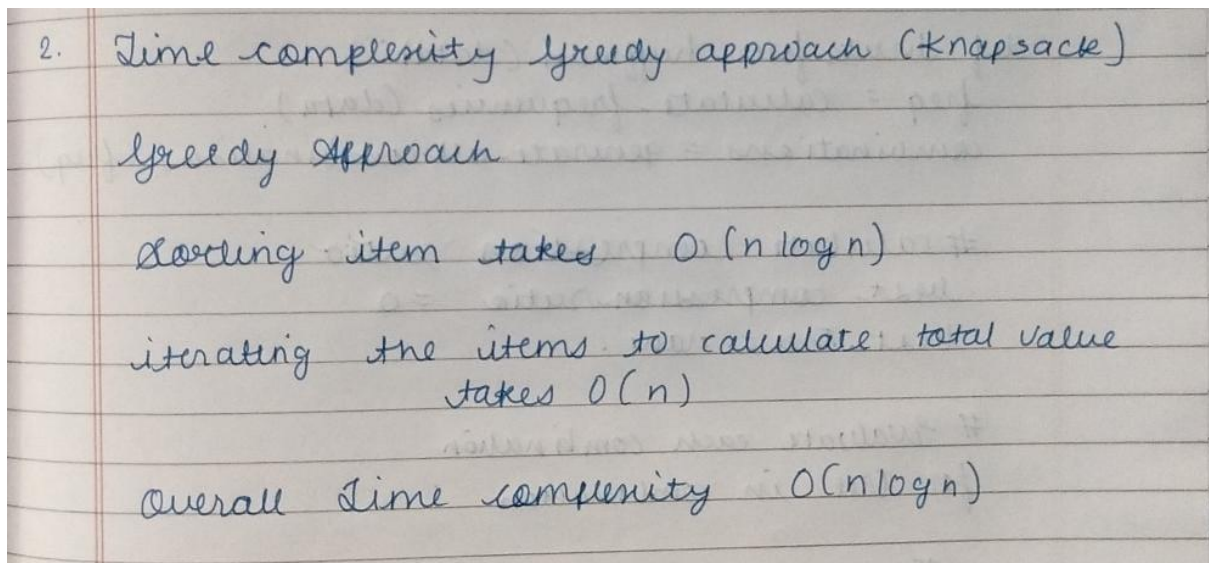 2. Time complexity Greedy approach (Knapsack)
Greedy Approach
Sorting item takes O(n log n)
iterating the items to calculate total value
takes O(n)
Overall Time complexity O(n log n)